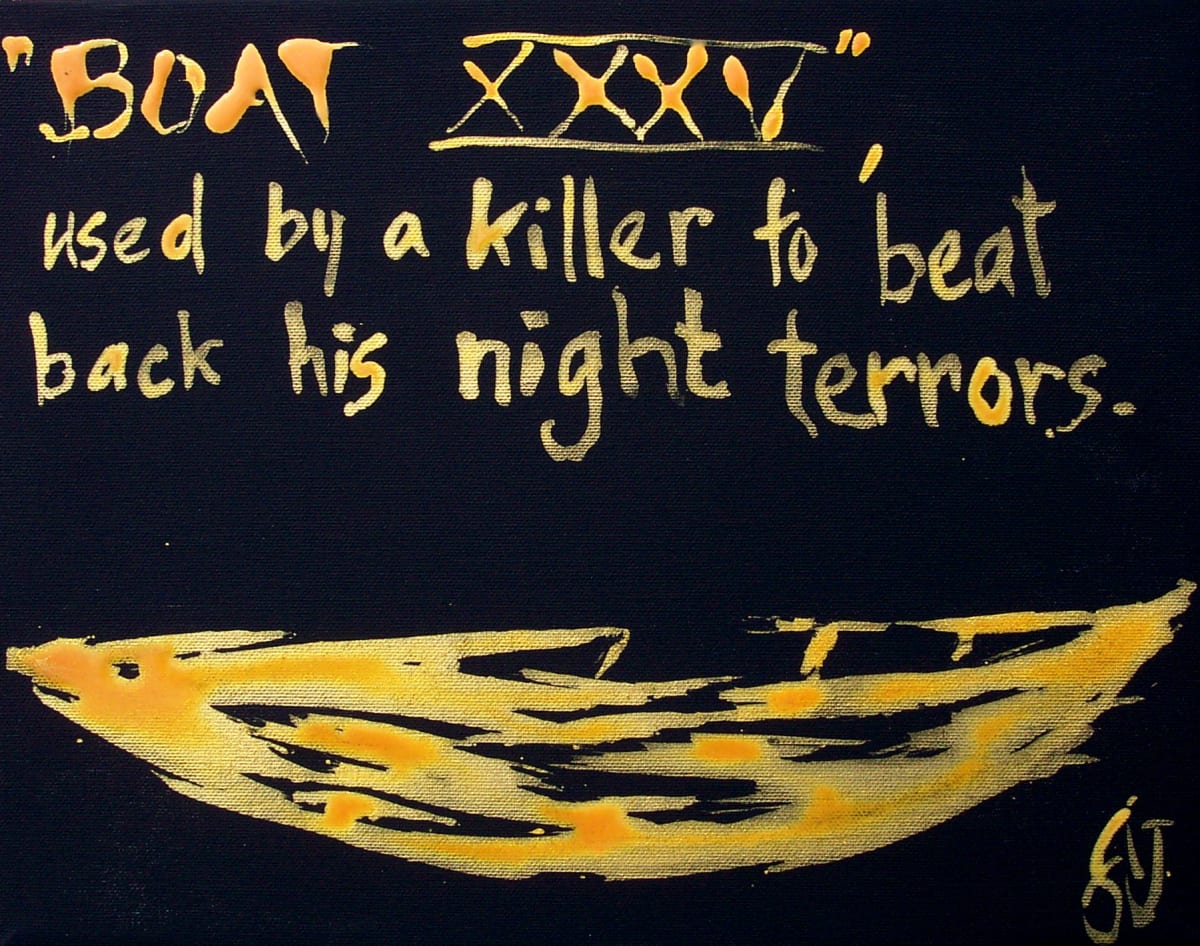 "BOAT XXXV"
used by a killer to 'beat
back his night terrors.